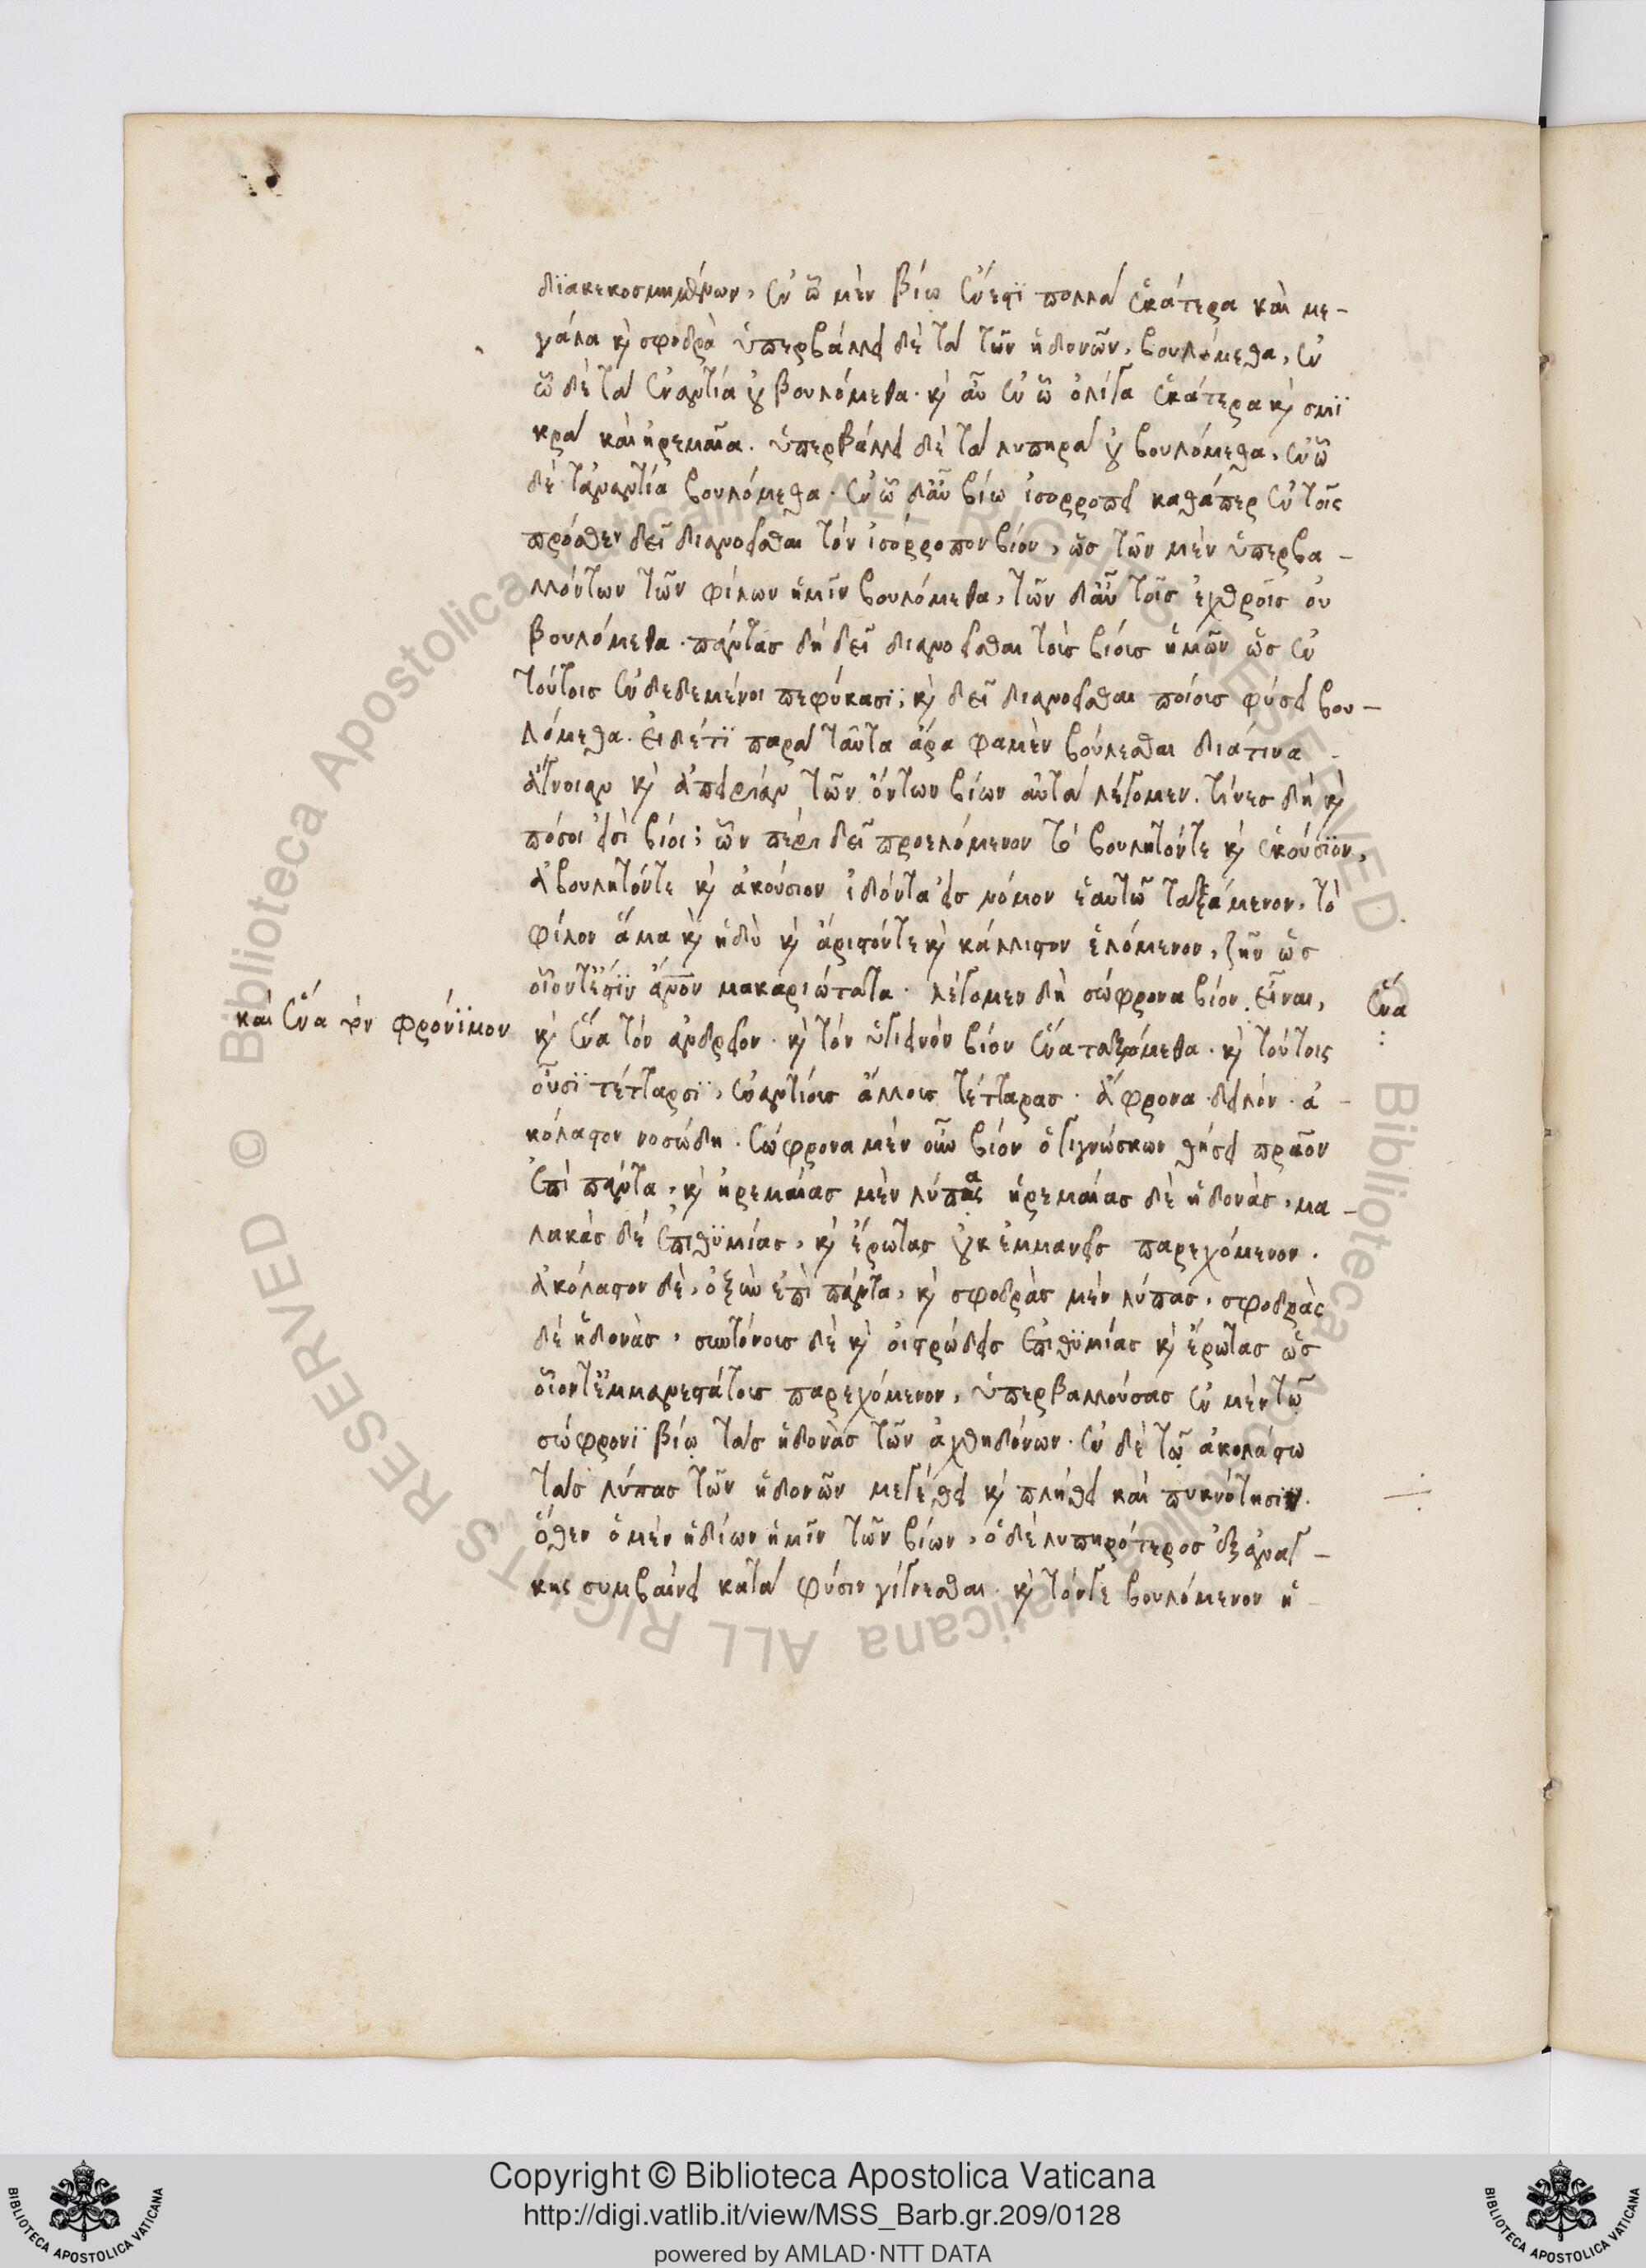 διακεκοσμημένων, ἐν ᾧ μὲν βίῳ ἔνεστι πολλὰ ἑκάτερα καὶ με-
γάλα καὶ σφοδρὰ ὑπερβάλλει δὲ τὰ τῶν ἡδονῶν, βουλόμεθα, ἐν
ᾧ δὲ τὰ ἐναντία οὐ βουλόμεθα. καὶ αὖ ἐν ᾧ ὀλίγα ἑκάτερα καὶ σμι
κρὰ καὶ ἠρεμαῖα. ὑπερβάλλει δὲ τὰ λυπηρὰ οὐ βουλόμεθα, ἐν ᾧ
δὲ τἀναντία βουλόμεθα. ἐν ᾧ δ' αὖ βίῳ ἰσορροπεῖ καθάπερ ἐν τοῖς
πρόσθεν δεῖ διανοεῖσθαι τὸν ἰσόρροπον βίον, ὡς τῶν μὲν ὑπερβα-
λλόντων τῶν φίλων ἡμῖν βουλόμεθα, τῶν δ' αὖ τοῖς ἐχθροῖς οὐ
βουλόμεθα. πάντας δὴ δεῖ διανοεῖσθαι τοὺς βίους ἡμῶν ὡς ἐν
τούτοις ἐνδεδεμένοι πεφύκασι; καὶ δεῖ διανοεῖσθαι ποίους φύσει βου-
λόμεθα. εἰ δέ τι παρὰ ταῦτα ἄρα φαμὲν βούλεσθαι διά τινα
ἄγνοιαν καὶ ἀπειρίαν τῶν ὄντων βίων αὐτὰ λέγομεν. τίνες δὴ καὶ
πόσοι εἰσὶ βίοι; ὧν πέρι δεῖ προελόμενον τὸ βουλητόν τε καὶ ἑκούσιον,
ἀβούλητόν τε καὶ ἀκούσιον ἰδόντα εἰς νόμον ἑαυτῷ ταξάμενον, τὸ
φίλον ἅμα καὶ ἡδὺ καὶ ἄριστόν τε καὶ κάλλιστον ἑλόμενον, ζῆν ὡς
οἷόν τ' ἐστὶν ἄνον μακαριώτατα. λέγομεν δὴ σώφρονα βίον εἶναι, ἕνα
καὶ ἕνα τὸν φρόνιμον
καὶ ἕνα τὸν ἀνδρεῖον. καὶ τὸν ὑγιεινὸν βίον ἕνα ταξόμεθα. καὶ τούτοις
οὖσι τέτταρσι, ἐναντίους ἄλλους τέτταρας. ἄφρονα. δειλόν. ἀ-
κόλαστον νοσώδη. σώφρονα μὲν οὖν βίον ὁ γιγνώσκων θήσει πρᾶον
ἐπὶ πάντα, καὶ ἠρεμαίας μὲν λύπας ἠρεμαίας δὲ ἡδονὰς, μα-
λακὰς δὲ ἐπιθυμίας, καὶ ἔρωτας οὐκ ἐμμανεῖς παρεχόμενον.
ἀκόλαστον δὲ, ὀξὺν ἐπὶ πάντα, καὶ σφοδρὰς μὲν λύπας, σφοδρὰς
δὲ ἡδονὰς, συντόνους δὲ καὶ οἰστρώδεις ἐπιθυμίας καὶ ἔρωτας ὡς
οἷόν τ' ἐμμανεστάτους παρεχόμενον, ὑπερβαλλούσας ἐν μὲν τῷ
σώφρονι βίῳ τὰς ἡδονὰς τῶν ἀχθηδόνων. ἐν δὲ τῷ ἀκολάστῳ
τὰς λύπας τῶν ἡδονῶν μεγέθει καὶ πλήθει καὶ πυκνότησιν.
ὅθεν ὁ μὲν ἡδίων ἡμῖν τῶν βίων, ὁ δὲ λυπηρότερος ἐξ ἀναγ-
κης συμβαίνει κατὰ φύσιν γίγνεσθαι. καὶ τόν γε βουλόμενον ἡ-
Copyright © Biblioteca Apostolica Vaticana
http://digi.vatlib.it/view/MSS_Barb.gr.209/0128
powered by AMLAD·NTT DATA
BIBLIOTECA APOSTOLICA VATICANA
BIBLIOTECA APOSTOLICA VATICANA
© Biblioteca Apostolica Vaticana ALL RIGHTS RESERVED © Biblioteca Apostolica Vaticana ALL RIGHTS RESERVED